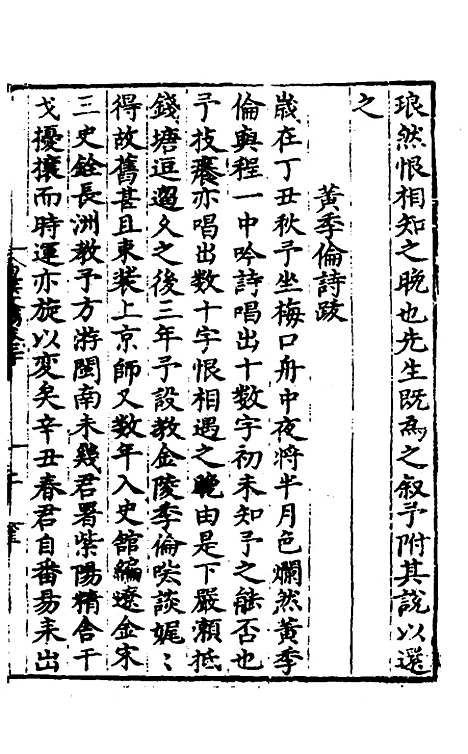 琅然恨相知之晚也先生既為之叙予附其說以遂
之
黃季倫詩跋
歲在丁丑秋予坐梅口舟中夜將半月色爛然黃季
倫與程一中吟詩唱出十數字初未知予之能否也
予技癢亦唱出数十字恨相遇之晚由是下嚴瀬抵
錢塘逗遛久之後三年予設教金陵季倫咲談娓〻
得故舊甚且束裝上京師又数年入史館編遼金宋
三史銓長洲教予方游閩南未幾君署紫陽精舎干
戈擾攘而時運亦旋以変矣辛丑春君自番昜来出